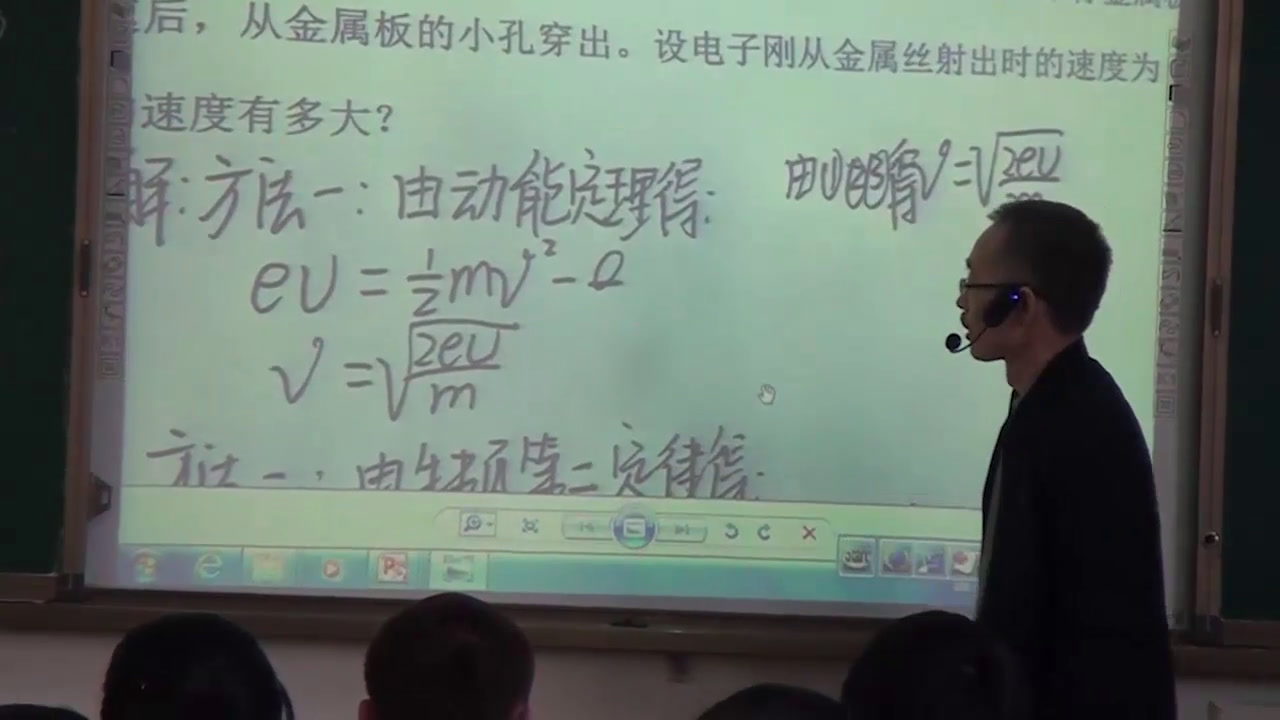 后，从金属板的小孔穿出。设电子刚从金属丝射出时的速度为
速度有多大？
解：方法一：由动能定理得：
eU = ½mv² - 0
v = √(2eU/m)
由①②③得 v = √(2eU/m)
方法二：由牛顿第二定律得：